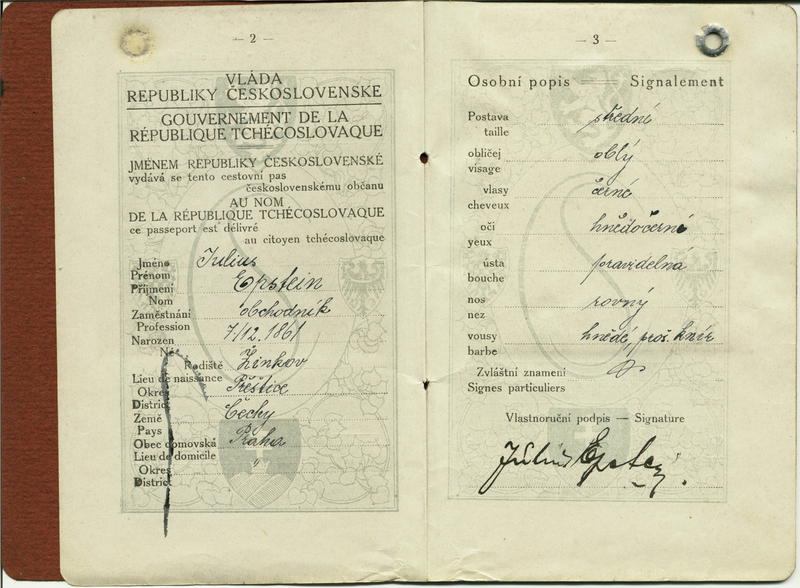 — 2 —
VLÁDA
REPUBLIKY ČESKOSLOVENSKE
GOUVERNEMENT DE LA
RÉPUBLIQUE TCHÉCOSLOVAQUE
JMÉNEM REPUBLIKY ČESKOSLOVENSKÉ
vydává se tento cestovní pas
československému občanu
AU NOM
DE LA RÉPUBLIQUE TCHÉCOSLOVAQUE
ce passeport est délivré
au citoyen tchécoslovaque
Jméno Julius
Prénom
Příjmení Epstein
Nom
Zaměstnání obchodník
Profession
Narozen 7/12.1861
Né
Rodiště Žinkov
Lieu de naissance
Okres Přeštice
District
Země Čechy
Pays
Obec domovská Praha
Lieu de domicile
Okres "
District
— 3 —
Osobní popis — Signalement
Postava střední
taille
obličej oblý
visage
vlasy černé
cheveux
oči hnědočerné
yeux
ústa pravidelná
bouche
nos rovný
nez
vousy hnědé, proš. knír
barbe
Zvláštní znamení
Signes particuliers
Vlastnoruční podpis — Signature
Julius Epstein